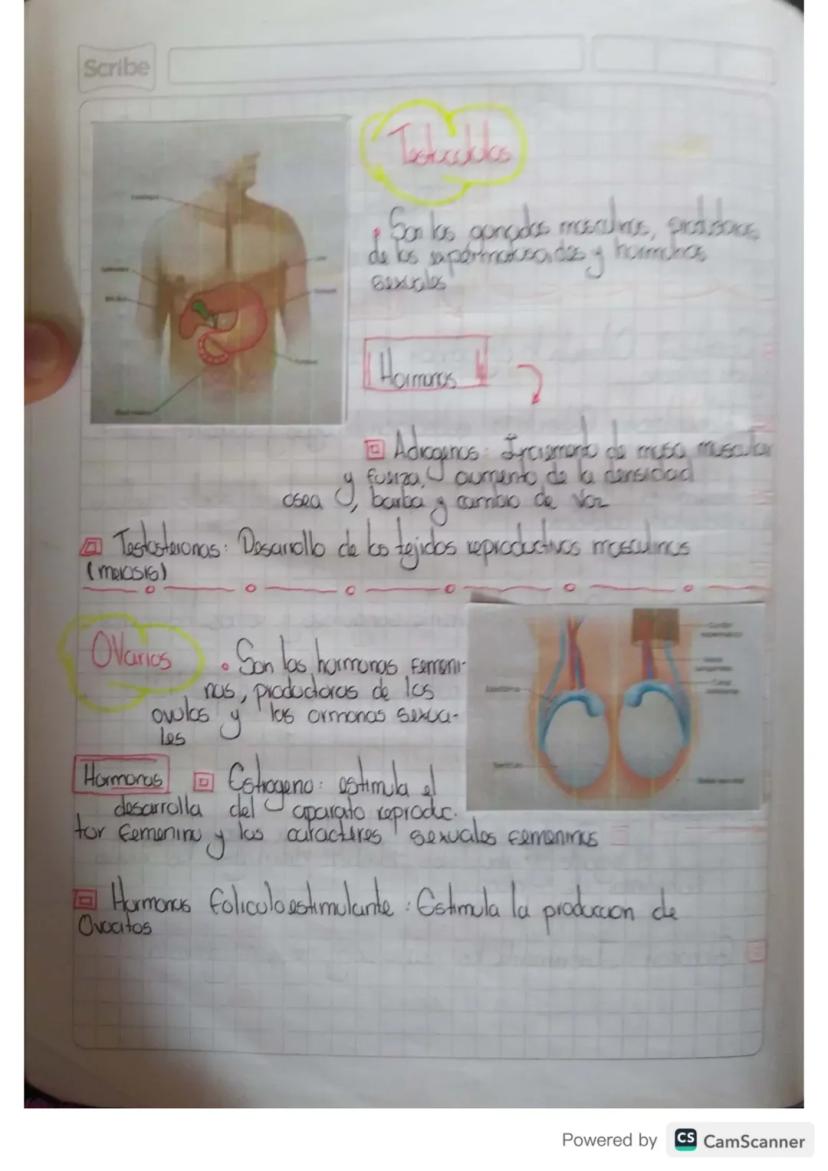 Scribe
Testiculos
• Son las gonadas masculinas, productoras
de los espermatozoides y hormonas
sexuales
Hormonas
Adrogenos: Incremento de masa muscular
y fuerza, aumento de la densidad
osea, barba y cambio de voz
Testosteronas: Desarrollo de los tejidos reproductivos masculinos
(meiosis)
Ovarios
• Son las hormonas femeni-
nas, productoras de los
ovulos y las ormonas sexua-
les
Hormonas
Estrogeno: estimula el
desarrolla del aparato reproduc.
tor femenino y los caracteres sexuales femeninos
Hormonas foliculoestimulante: Estimula la produccion de
Ovocitos
Powered by CS CamScanner